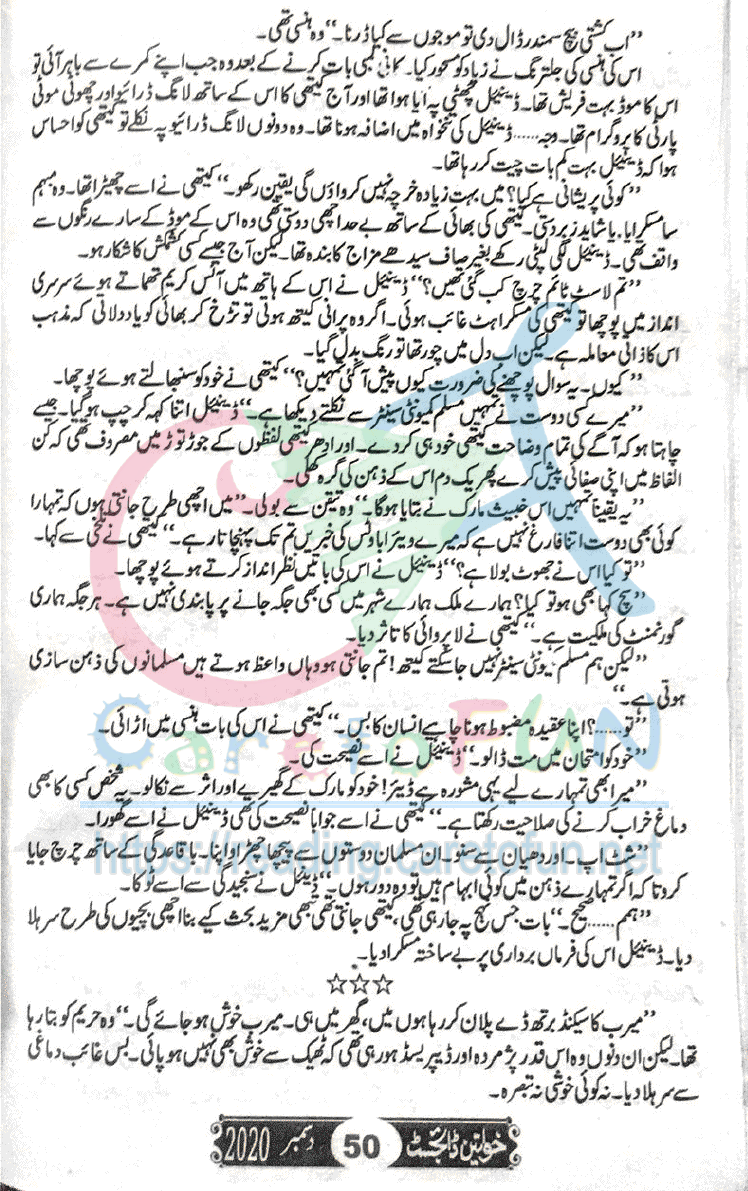 ’’اب کشتی بیچ سمندر ڈال دی تو موجوں سے کیا ڈرنا۔‘‘ وہ ہنسی تھی۔
اس کی ہنسی کی جلترنگ نے زیاد کو مسحور کیا۔ کافی لمبی بات کرنے کے بعد وہ جب اپنے کمرے سے باہر آئی تو
اس کا موڈ بہت فریش تھا۔ ڈینیئل چھٹی پہ آیا ہوا تھا اور آج کیتھی کا اس کے ساتھ لانگ ڈرائیو اور چھوٹی موٹی
پارٹی کا پروگرام تھا۔ وجہ...... ڈینیئل کی تنخواہ میں اضافہ ہونا تھا۔ وہ دونوں لانگ ڈرائیو پہ نکلے تو کیتھی کو احساس
ہوا کہ ڈینیئل بہت کم بات چیت کر رہا تھا۔
’’کوئی پریشانی ہے کیا؟ میں بہت زیادہ خرچہ نہیں کرواؤں گی یقین رکھو۔‘‘ کیتھی نے اسے چھیڑا تھا۔ وہ مبہم
سا مسکرایا۔ یا شاید زبردستی۔ کیتھی کی بھائی کے ساتھ بے حد اچھی دوستی تھی وہ اس کے موڈ کے سارے رنگوں سے
واقف تھی۔ ڈینیئل لگی لپٹی رکھے بغیر صاف سیدھے مزاج کا بندہ تھا لیکن آج جیسے کسی کشمکش کا شکار ہو۔
’’تم لاسٹ ٹائم چرچ کب گئی تھیں؟‘‘ ڈینیئل نے اس کے ہاتھ میں آئس کریم تھماتے ہوئے سرسری
انداز میں پوچھا تو کیتھی کی مسکراہٹ غائب ہوئی۔ اگر وہ پرانی کیتھ ہوتی تو تڑخ کر بھائی کو یاد دلاتی کہ مذہب
اس کا ذاتی معاملہ ہے۔ لیکن اب دل میں چور تھا تو رنگ بدل گیا۔
’’کیوں۔ یہ سوال پوچھنے کی ضرورت کیوں پیش آ گئی تمہیں؟‘‘ کیتھی نے خود کو سنبھالتے ہوئے پوچھا۔
’’میرے کسی دوست نے تمہیں مسلم کمیونٹی سینٹر سے نکلتے دیکھا ہے۔‘‘ ڈینیئل اتنا کہہ کر چپ ہو گیا۔ جیسے
چاہتا ہو کہ آگے کی تمام وضاحت کیتھی خود ہی کر دے۔ اور ادھر کیتھی لفظوں کے جوڑ توڑ میں مصروف تھی کہ کن
الفاظ میں اپنی صفائی پیش کرے پھر یک دم اس کے ذہن کی گرہ کھلی۔
’’یہ یقیناً تمہیں اس خبیث مارک نے بتایا ہوگا۔‘‘ وہ تیقن سے بولی۔ ’’میں اچھی طرح جانتی ہوں کہ تمہارا
کوئی بھی دوست اتنا فارغ نہیں ہے کہ میرے ویئر اباؤٹس کی خبریں تم تک پہنچاتا رہے۔‘‘ کیتھی نے تلخی سے کہا۔
’’تو کیا اس نے جھوٹ بولا ہے؟‘‘ ڈینیئل نے اس کی باتیں نظر انداز کرتے ہوئے پوچھا۔
’’سچ کہا بھی ہو تو کیا؟ ہمارے ملک ہمارے شہر میں کسی بھی جگہ جانے پر پابندی نہیں ہے۔ ہر جگہ ہماری
گورنمنٹ کی ملکیت ہے۔‘‘ کیتھی نے لاپروائی کا تاثر دیا۔
’’لیکن ہم مسلم کمیونٹی سینٹر نہیں جا سکتے کیتھ! تم جانتی ہو وہاں واعظ ہوتے ہیں مسلمانوں کی ذہن سازی
ہوتی ہے۔‘‘
’’تو......؟ اپنا عقیدہ مضبوط ہونا چاہیے انسان کا بس۔‘‘ کیتھی نے اس کی بات ہنسی میں اڑائی۔
’’خود کو امتحان میں مت ڈالو۔‘‘ ڈینیئل نے اسے نصیحت کی۔
’’میرا بھی تمہارے لیے یہی مشورہ ہے ڈیئر! خود کو مارک کے گھیرے اور اثر سے نکالو۔ یہ شخص کسی کا بھی
دماغ خراب کرنے کی صلاحیت رکھتا ہے۔‘‘ کیتھی نے اسے جواباً نصیحت کی تھی ڈینیئل نے اسے گھورا۔
’’شٹ اپ۔ اور دھیان سے سنو۔ ان مسلمان دوستوں سے پیچھا چھڑاؤ اپنا۔ باقاعدگی کے ساتھ چرچ جایا
کرو تا کہ اگر تمہارے ذہن میں کوئی ابہام ہیں تو وہ دور ہوں۔‘‘ ڈینیئل نے سنجیدگی سے اسے ٹوکا۔
’’ہم...... صحیح۔‘‘ بات جس نہج پہ جا رہی تھی، کیتھی جانتی تھی تبھی مزید بحث کیے بنا اچھی بچیوں کی طرح سر ہلا
دیا۔ ڈینیئل اس کی فرماں برداری پر بے ساختہ مسکرا دیا۔
☆☆☆
’’میرب کا سیکنڈ برتھ ڈے پلان کر رہا ہوں میں، گھر میں ہی۔ میرب خوش ہو جائے گی۔‘‘ وہ حریم کو بتا رہا
تھا۔ لیکن ان دنوں وہ اس قدر پژمردہ اور ڈیپریسڈ ہو رہی تھی کہ ٹھیک سے خوش بھی نہیں ہو پائی۔ بس غائب دماغی
سے سر ہلا دیا۔ نہ کوئی خوشی نہ تبصرہ۔
خواتین ڈائجسٹ 50 دسمبر 2020
Care to FUN
https://reading.caretofun.net